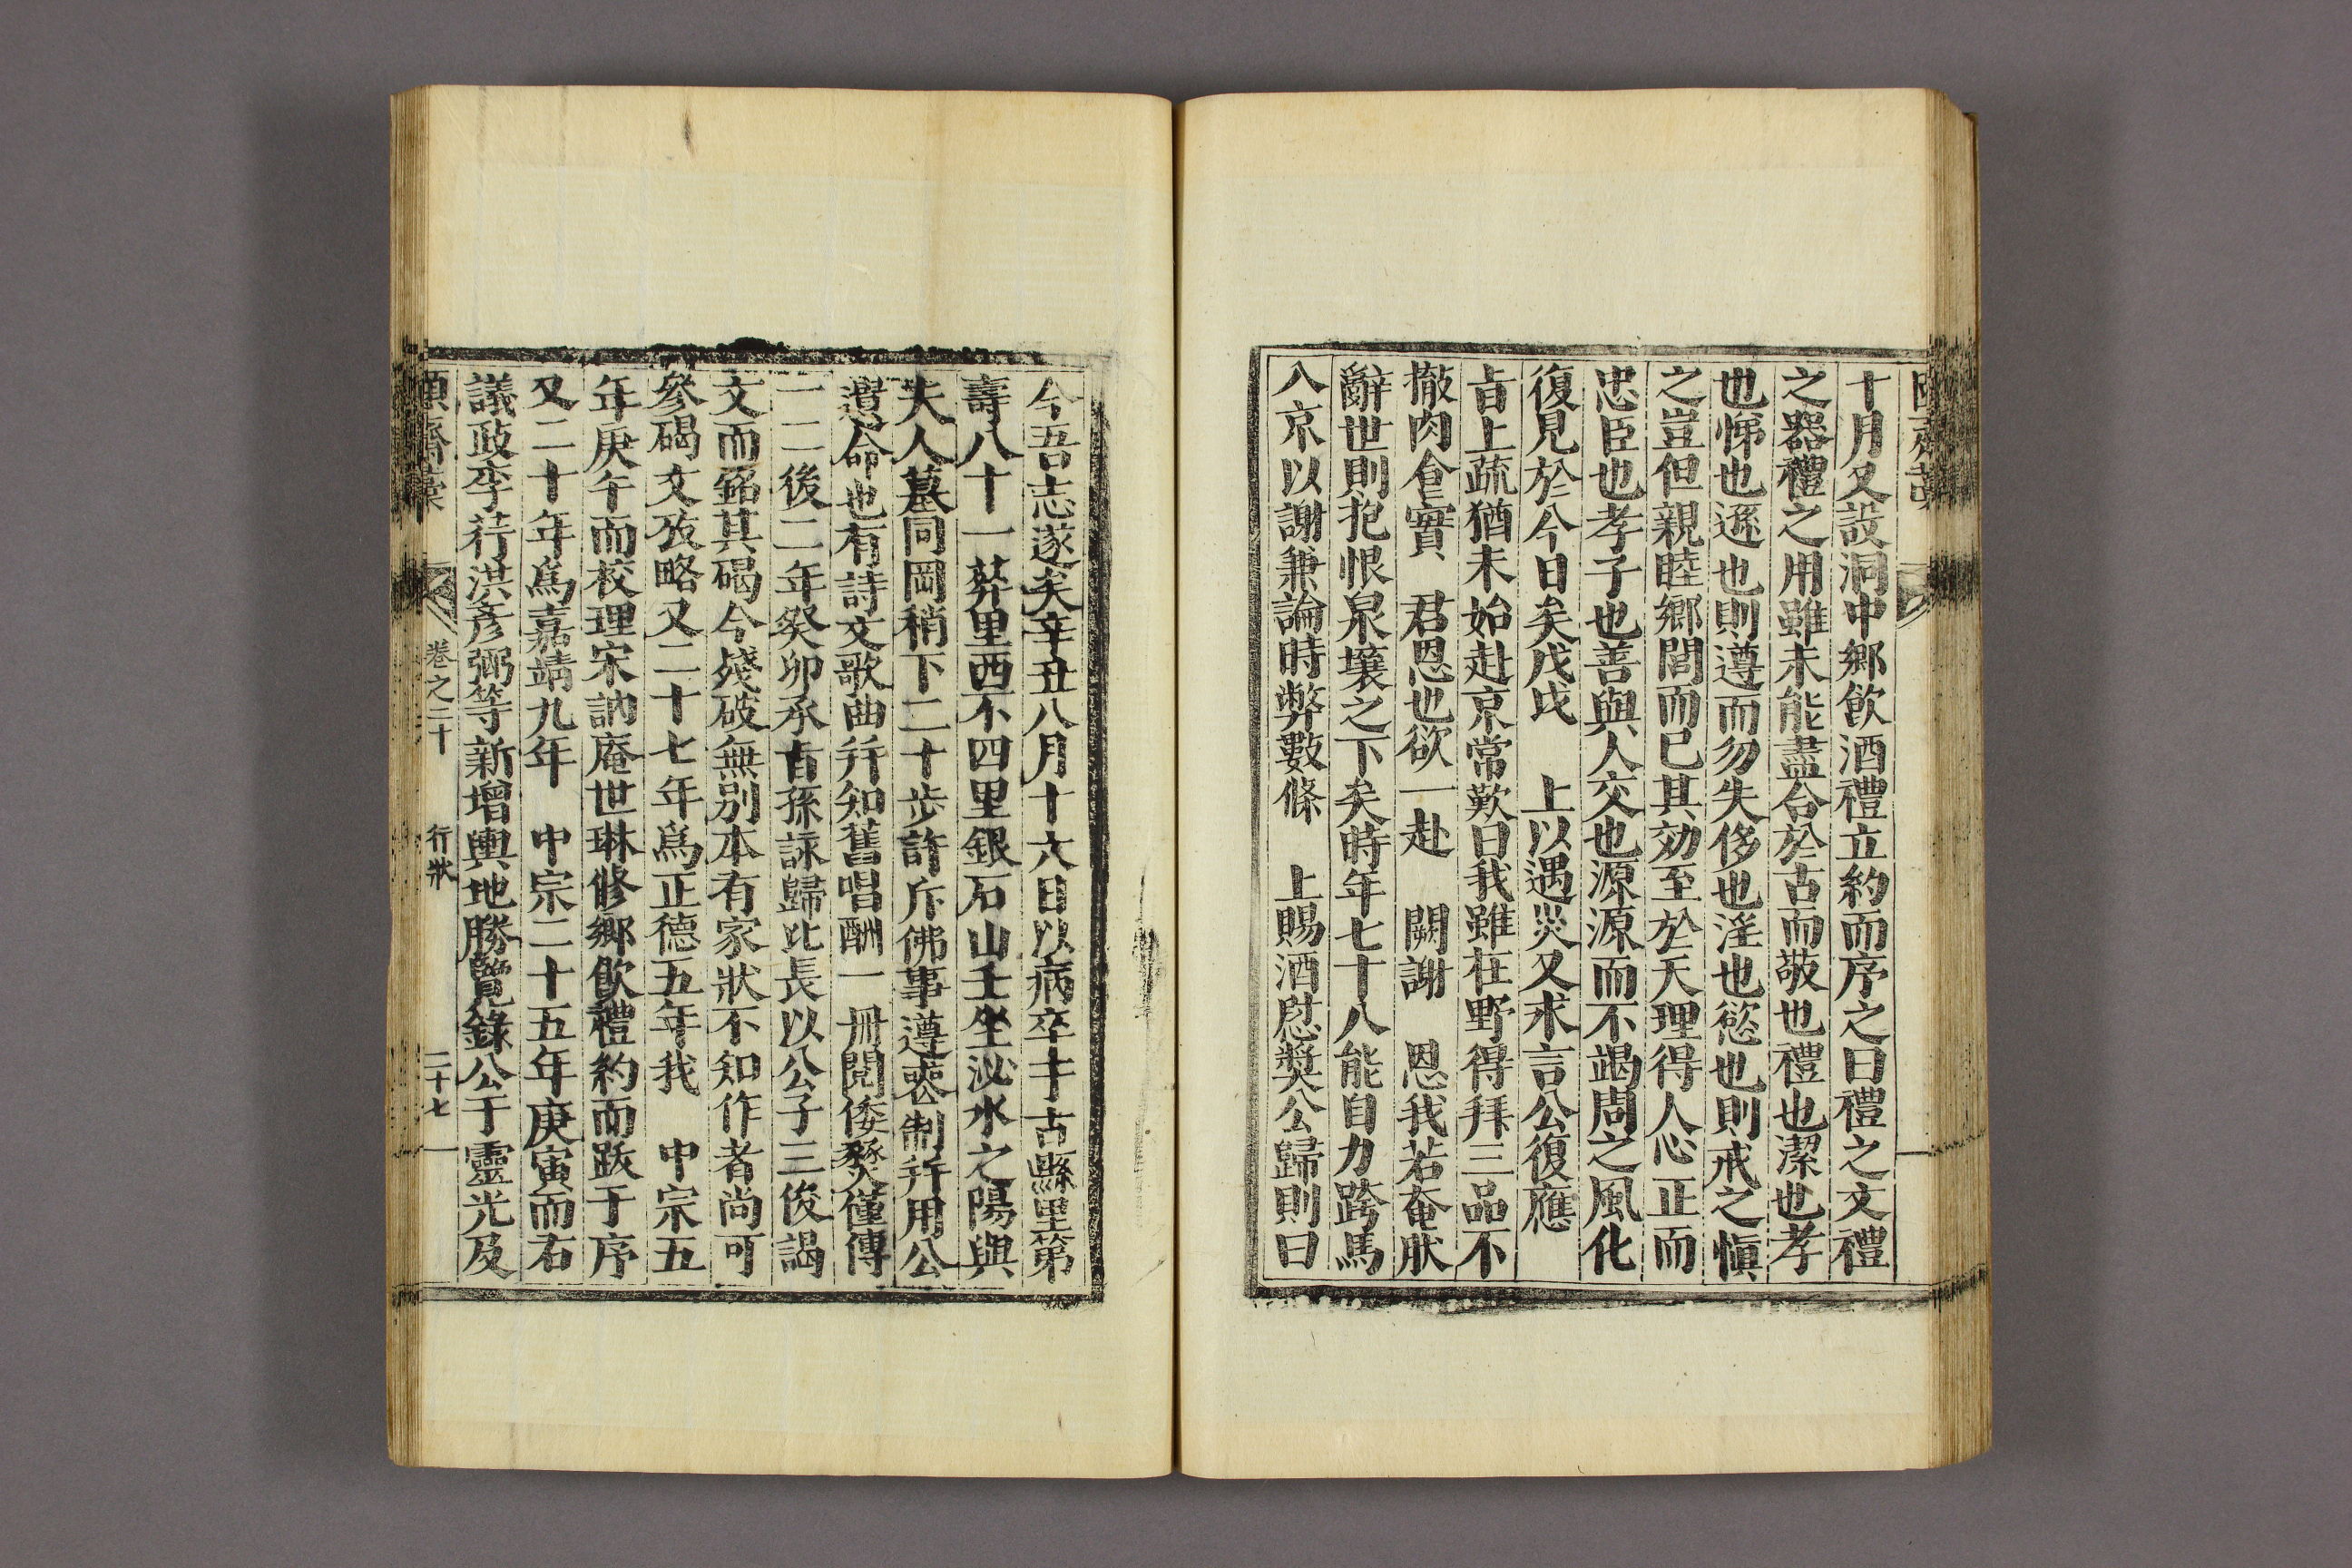 十月又設洞中鄕飮酒禮立約而序之曰禮之文禮
之器禮之用雖未能盡合於古而敬也禮也潔也孝
也悌也遜也則遵而勿失侈也淫也慾也則戒之愼
之豈但親睦鄕閭而已其効至於天理得人心正而
忠臣也孝子也善與人交也源源而不竭周之風化
復見於今日矣戊戌　上以遇災又求言公復應
旨上疏猶未始赴京常歎曰我雖在野得拜三品不
撤肉食實　君恩也欲一赴　闕謝　恩我若奄肰
辭世則抱恨泉壤之下矣時年七十八能自力跨馬
入京以謝兼論時弊數條　上賜酒慰奬公歸則曰
今吾志遂矣辛丑八月十六日以病卒于古縣里第
壽八十一葬里西不四里銀石山壬坐泌水之陽與
夫人墓同岡稍下二十步許斥佛事遵喪制幷用公
遺命也有詩文歌曲幷知舊唱酬一冊閱倭燹僅傳
一二後二年癸卯承旨孫詠歸比長以公子三俊謁
文而銘其碣今殘破無別本有家狀不知作者尚可
參碣文攷略又二十七年爲正德五年我　中宗五
年庚午而校理宋訥庵世琳修鄕飮禮約而跋于序
又二十年爲嘉靖九年　中宗二十五年庚寅而右
議政李荇洪彥弼等新增輿地勝覽錄公于靈光及
頤齋藁　卷之二十　行狀　二十七